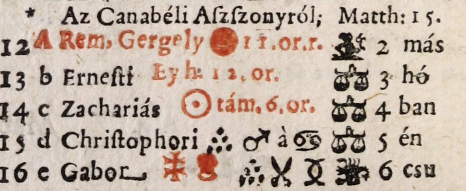 * Az Canabéli Aſzſzonyról; Matth: 15.
12 A Rem, Gergely 11.or.r. 2 más
13 b Ernesti Ey h: 12, or. ♎ 3 hó
14 c Zachariás ☉ tám, 6, or. ♎ 4 ban
15 d Chriſtophori ♂ à ♋ ♎ 5 én
16 e Gabor 6 csu